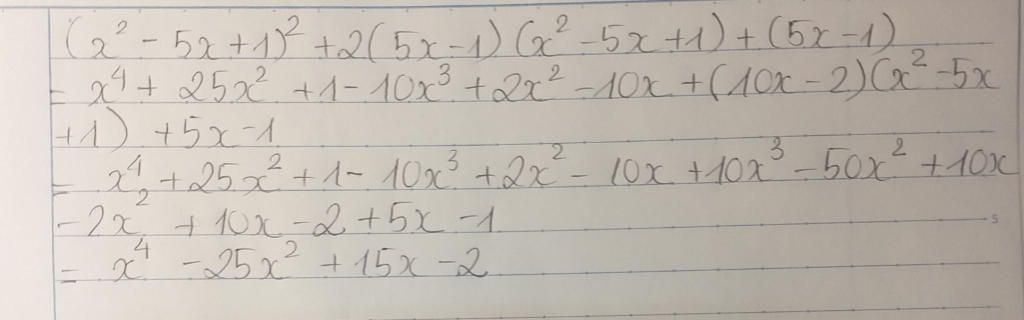 (x² - 5x + 1)² + 2(5x - 1)(x² - 5x + 1) + (5x - 1)
= x⁴ + 25x² + 1 - 10x³ + 2x² - 10x + (10x - 2)(x² - 5x
+ 1) + 5x - 1
= x⁴ + 25x² + 1 - 10x³ + 2x² - 10x + 10x³ - 50x² + 10x
- 2x² + 10x - 2 + 5x - 1
= x⁴ - 25x² + 15x - 2